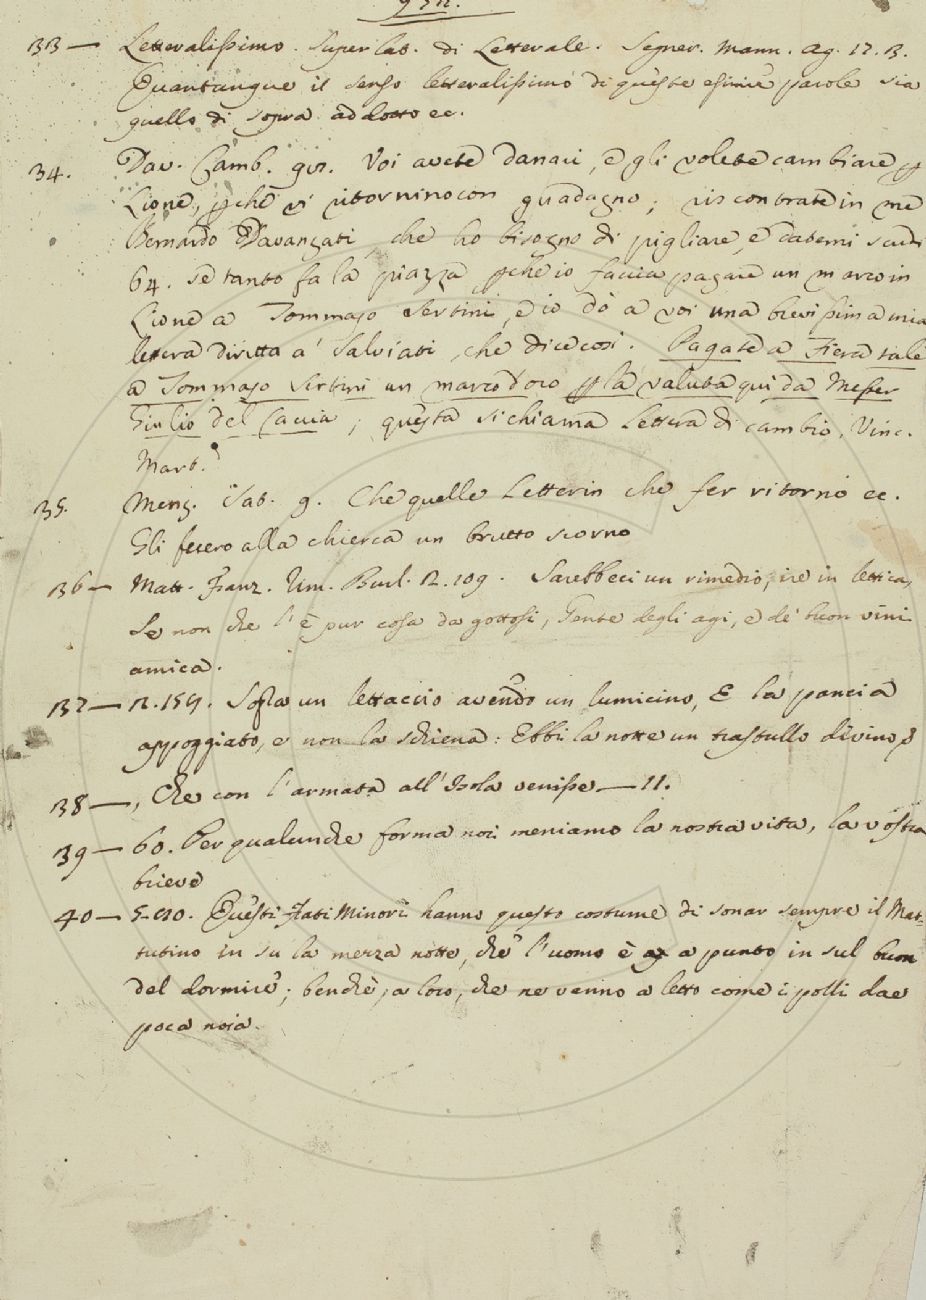 33— Letteralissimo. Superlat. di Letterale. Segner. Mann. Ag. 17. 3.
Quantunque il senso letteralissimo di queste esimie parole sia
quello di sopra addotto ec.
34. Dav. Camb. gio. Voi avete danari, e gli volete cambiare p
Lione, pchè vi ritornino con guadagno; riscontrate in me
Bernardo Davanzati, che ho bisogno di pigliare, e datemi scudi
64. se tanto fa la piazza pchè io faccia pagare un marco in
Lione a Tommaso Sertini, e io dò a voi una brevissima mia
lettera diritta a' Salviati, che dice così. Pagate a Fiera tale
a Tommaso Sertini un marco d'oro p la valuta quì da Messer
Giulio del Caccia; questa si chiama Lettera di cambio. Vinc.
Mart.
35. Menz. Sat. 9. Che quelle Letterin che fer ritorno ec.
Gli fecero alla chierca un brutto scorno
36— Matt. Franz. Rim. Burl. 2. 109. Sarebbeci un rimedio, ire in lettica,
Se non che l'è pur cosa da gottosi, Gente degli agi, e de' buon vini
amica.
37— 2. 159. Sopra un lettaccio avendo un lumicino, E la pancia
appoggiato, e non la schiena: Ebbi la notte un trastullo divino
38—, Che con l'armata all'Isola venisse—11.
39— 60. Per qualunche forma noi meniamo la nostra vita, la vostra
brieve
40— Questi Frati Minori hanno questo costume di sonar sempre il Mat-
tutino in su la mezza notte, che l'uomo è a punto in sul buon
del dormire; benchè, a loro, che ne vanno a letto come i polli dae
poca noia.